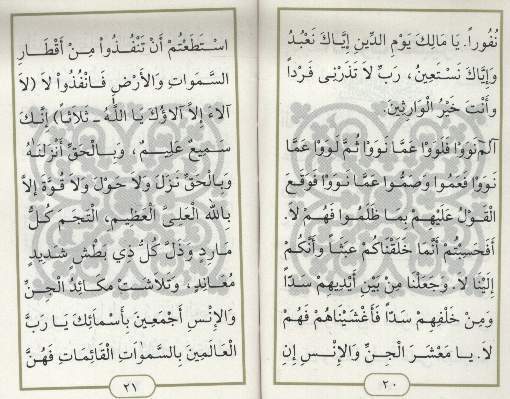 نُفُوراً. يَا مَالِكَ يَوْمِ الدِّينِ إِيَّاكَ نَعْبُدُ
وَإِيَّاكَ نَسْتَعِينُ، رَبِّ لاَ تَذَرْنِي فَرْداً
وَأَنْتَ خَيْرُ الْوَارِثِينَ.
آلم نَوَوْا فَلَوَوْا عَمَّا نَوَوْا ثُمَّ لَوَوْا عَمَّا
نَوَوْا فَعَمُوا وَصَمُّوا عَمَّا نَوَوْا فَوَقَعَ
الْقَوْلُ عَلَيْهِمْ بِمَا ظَلَمُوا فَهُمْ لاَ.
أَفَحَسِبْتُمْ أَنَّمَا خَلَقْنَاكُمْ عَبَثاً وَأَنَّكُمْ
إِلَيْنَا لاَ. وَجَعَلْنَا مِنْ بَيْنِ أَيْدِيهِمْ سَدّاً
وَمِنْ خَلْفِهِمْ سَدّاً فَأَغْشَيْنَاهُمْ فَهُمْ
لاَ. يَا مَعْشَرَ الْجِنِّ وَالإِنْسِ إِنِ
٢٠
اسْتَطَعْتُمْ أَنْ تَنْفُذُوا مِنْ أَقْطَارِ
السَّمَوَاتِ وَالأَرْضِ فَانْفُذُوا لاَ (لاَ
آلاَءَ إِلاَّ آلاَؤُكَ يَا اللَّهُ ـ ثَلاَثاً) إِنَّكَ
سَمِيعٌ عَلِيمٌ، وَبِالْحَقِّ أَنْزَلْنَاهُ
وَبِالْحَقِّ نَزَلَ وَلاَ حَوْلَ وَلاَ قُوَّةَ إِلاَّ
بِاللَّهِ الْعَلِيِّ الْعَظِيمِ، الْتَجَمَ كُلُّ
مَارِدٍ وَذَلَّ كُلُّ ذِي بَطْشٍ شَدِيدٍ
مُعَانِدٍ، وَتَلاَشَتْ مَكَائِدُ الْجِنِّ
وَالإِنْسِ أَجْمَعِينَ بِأَسْمَائِكَ يَا رَبَّ
الْعَالَمِينَ بِالسَّمَوَاتِ الْقَائِمَاتِ فَهُنَّ
٢١